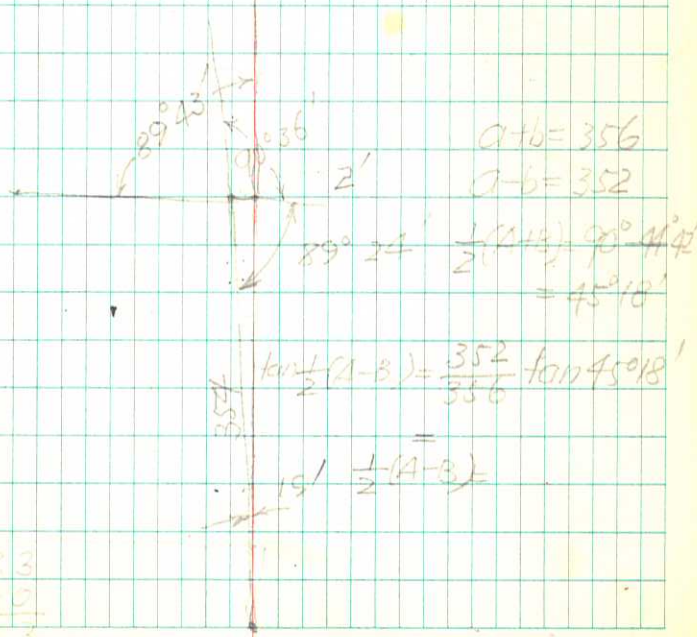 89°43'
90°36'
2'
89° 24'
a+b = 356
a-b = 352
½(A+B) = 90° - 44°42'
= 45°18'
tan ½(A-B) = 352/356 tan 45°18'
=
½(A-B) =
354
15'
3